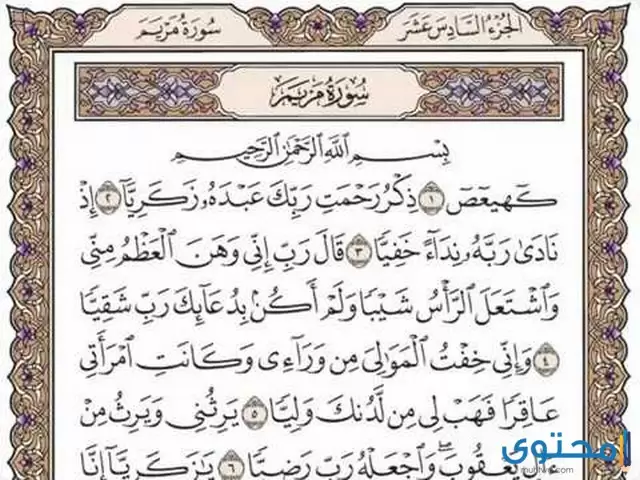 الجُزْءُ السَّادِسَ عَشَرَ
سُورَةُ مَرْيَمَ
سُورَةُ مَرْيَمَ
بِسْمِ ٱللَّهِ ٱلرَّحْمَٰنِ ٱلرَّحِيمِ
كٓهيعٓصٓ ١ ذِكْرُ رَحْمَتِ رَبِّكَ عَبْدَهُۥ زَكَرِيَّآ ٢ إِذْ
نَادَىٰ رَبَّهُۥ نِدَآءً خَفِيًّا ٣ قَالَ رَبِّ إِنِّى وَهَنَ ٱلْعَظْمُ مِنِّى
وَٱشْتَعَلَ ٱلرَّأْسُ شَيْبًا وَلَمْ أَكُنۢ بِدُعَآئِكَ رَبِّ شَقِيًّا
٤ وَإِنِّى خِفْتُ ٱلْمَوَٰلِىَ مِن وَرَآءِى وَكَانَتِ ٱمْرَأَتِى
عَاقِرًا فَهَبْ لِى مِن لَّدُنكَ وَلِيًّا ٥ يَرِثُنِى وَيَرِثُ مِنْ
يَعْقُوبَ ۖ وَٱجْعَلْهُ رَبِّ رَضِيًّا ٦ يَٰزَكَرِيَّآ إِنَّا
محتوى